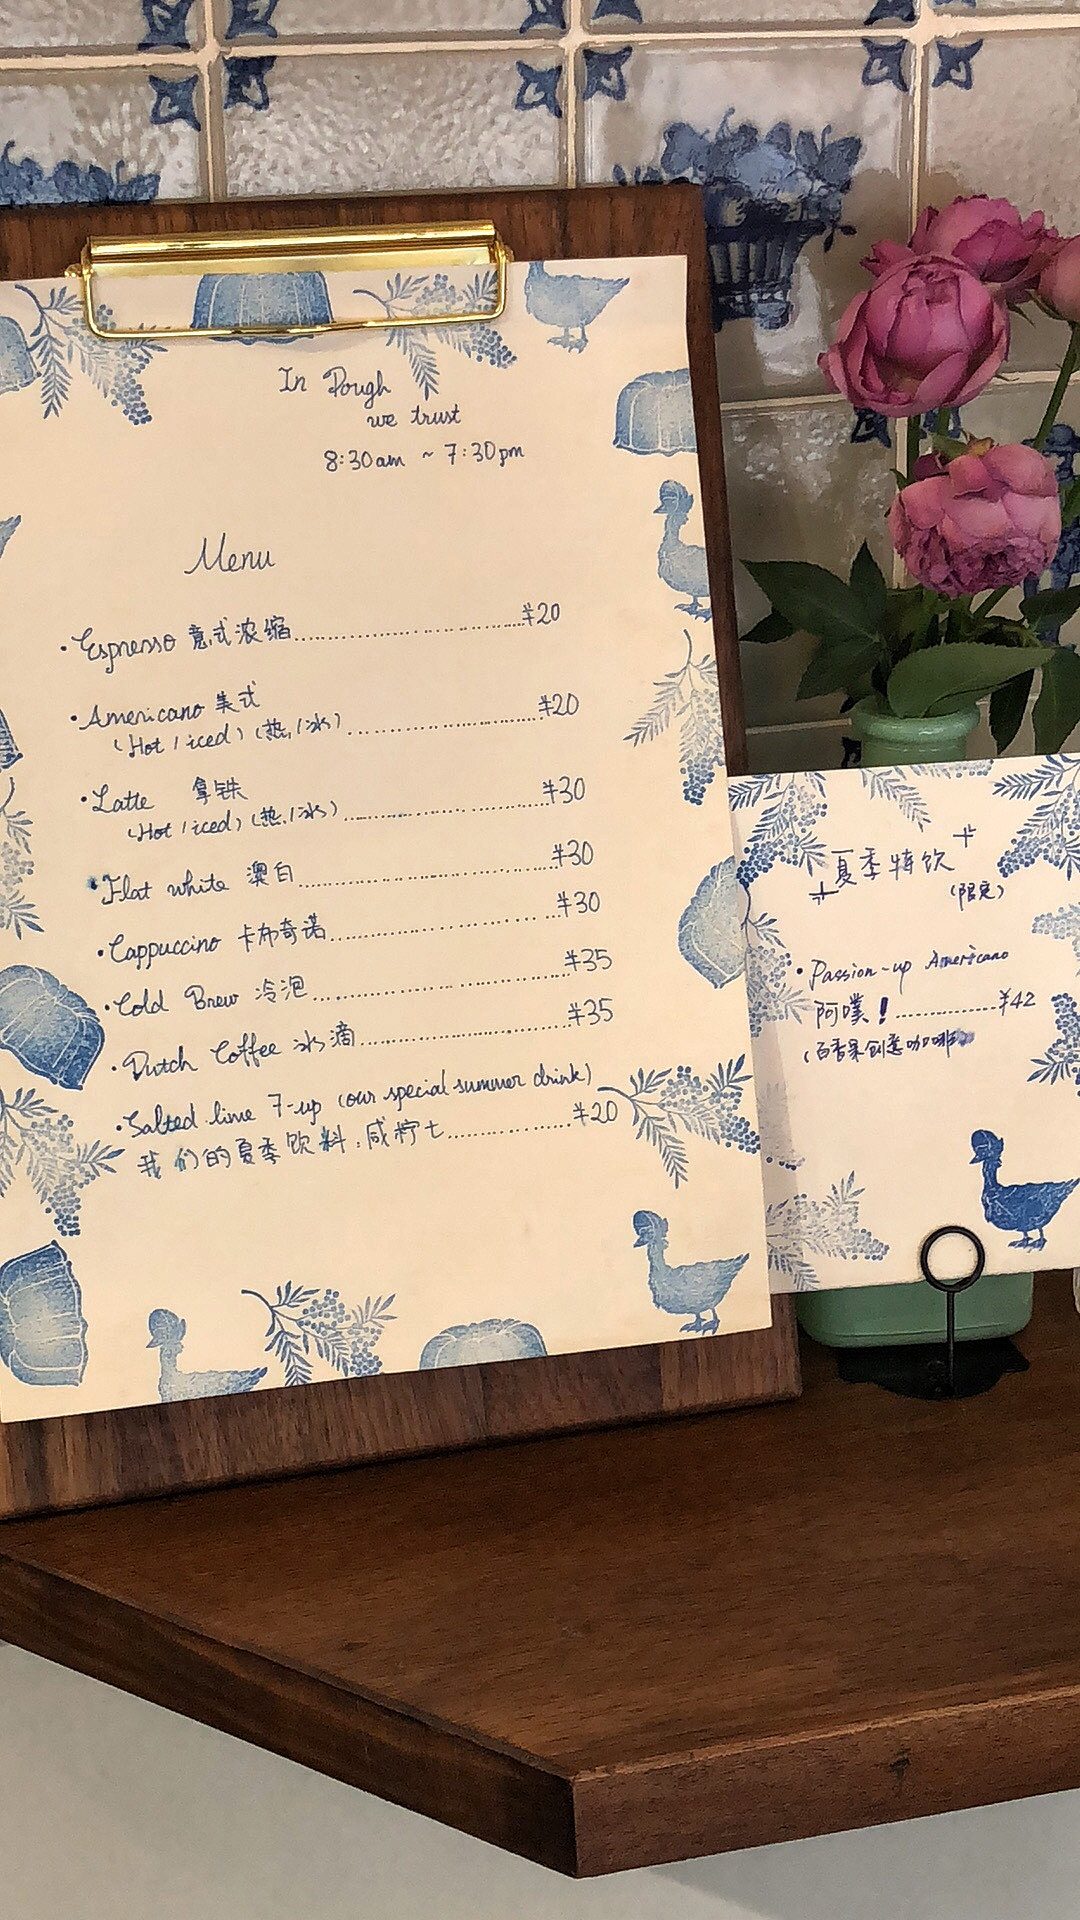 In Dough
we trust
8:30am ~ 7:30pm
Menu
•Espresso 意式浓缩....................¥20
•Americano 美式
(Hot / iced) (热/冰)....................¥20
•Latte 拿铁
(Hot / iced) (热/冰)....................¥30
•Flat white 澳白....................¥30
•Cappuccino 卡布奇诺....................¥30
•Cold Brew 冷泡....................¥35
•Dutch Coffee 冰滴....................¥35
•Salted lime 7-up (our special summer drink)
我们的夏季饮料:咸柠七....................¥20
夏季特饮
(限定)
•Passion-up Americano
阿噗!....................¥42
(百香果创意咖啡)